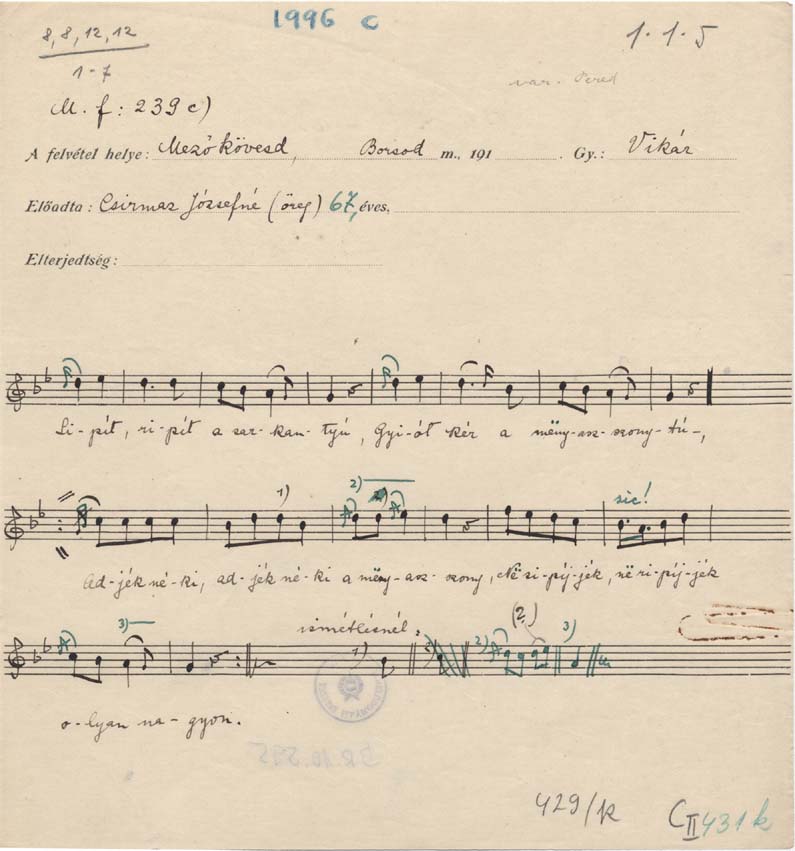 1996 c
8, 8, 12, 12
1-7
1·1·5
var. Pered
M. f: 239 c)
A felvétel helye: Mezőkövesd, Borsod m., 191 . Gy.: Vikár
Előadta: Csirmaz Józsefné (öreg) 67, éves,
Elterjedtség:
Si-pít, ri-pít a sar-kan-tyú, Gyi-ót kér a mëny-asz-szony-tú-,
1) 2) sic!
Ad-ják né-ki, ad-ják né-ki a mëny-asz-szony, Në si-píj-jék, në ri-píj-jék
3) ismétlésnél: 1) 2) (2.) 3)
o-lyan na-gyon.
429/k
C II 431 k